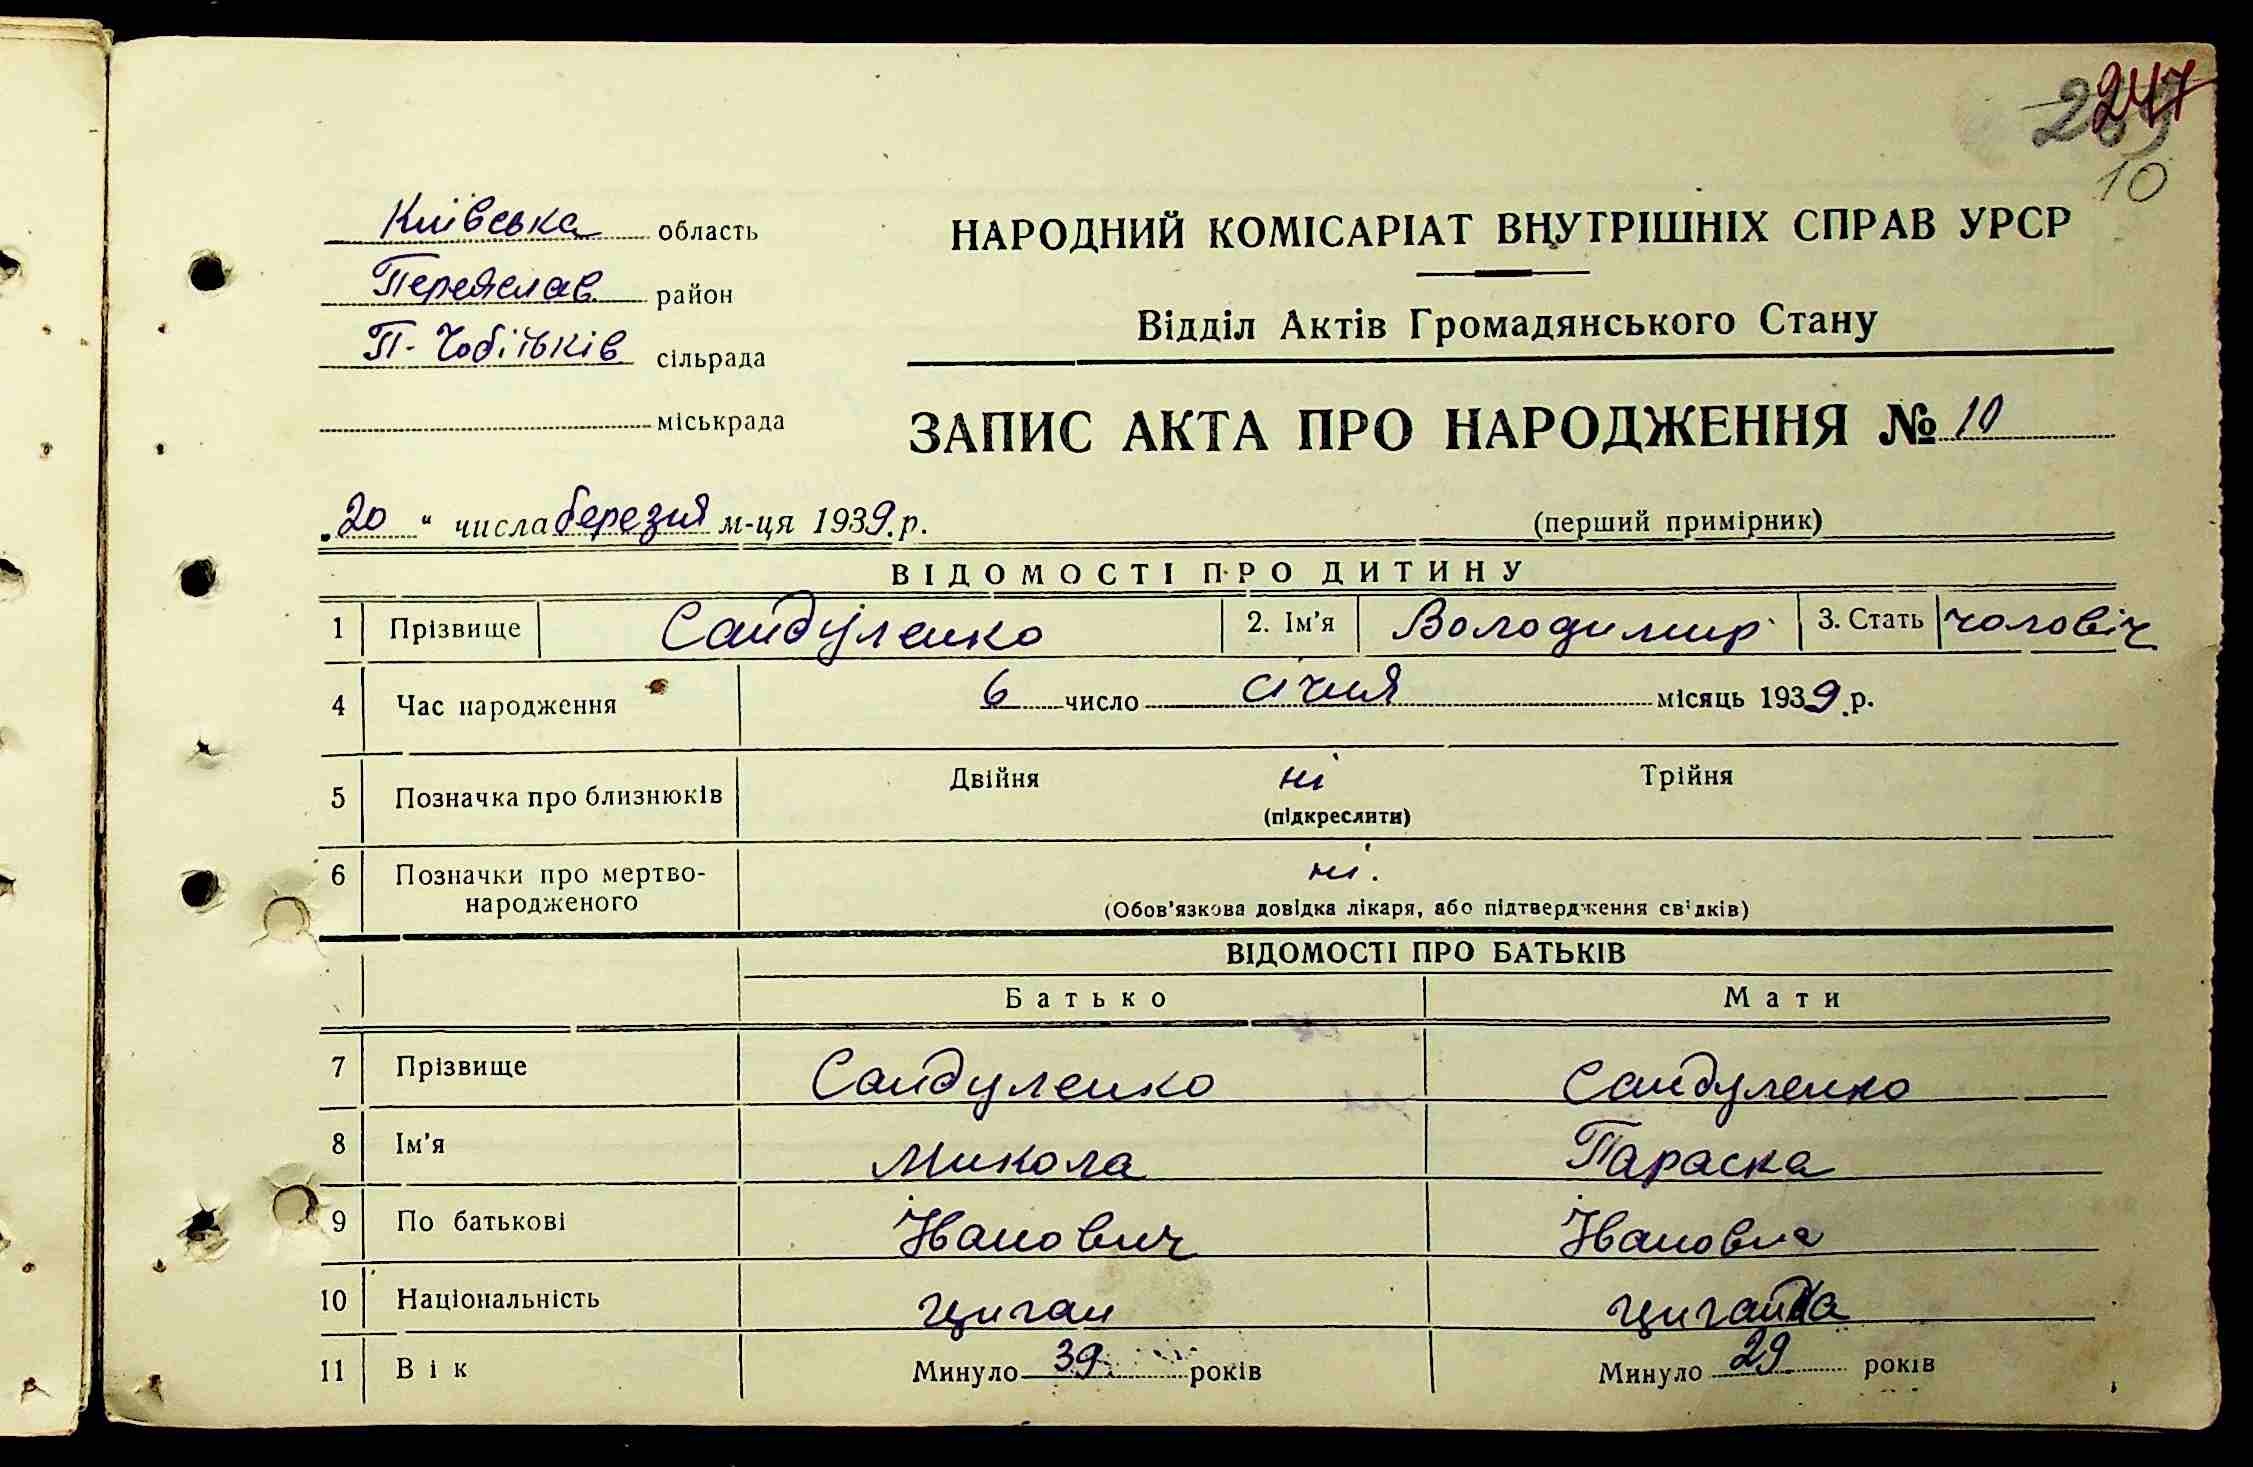 247
10
Київська область
Переяслав район
П-Чобітьків сільрада
міськрада
НАРОДНИЙ КОМІСАРІАТ ВНУТРІШНІХ СПРАВ УРСР
Відділ Актів Громадянського Стану
ЗАПИС АКТА ПРО НАРОДЖЕННЯ № 10
„20“ числа березня м-ця 1939.р.
(перший примірник)
ВІДОМОСТІ ПРО ДИТИНУ
1 Прізвище Сандуленко 2. Ім'я Володимир 3. Стать чоловіч
4 Час народження 6 число січня місяць 1939.р.
5 Позначка про близнюків Двійня ні Трійня
(підкреслити)
6 Позначки про мертво-
народженого ні.
(Обов'язкова довідка лікаря, або підтвердження свідків)
ВІДОМОСТІ ПРО БАТЬКІВ
Батько Мати
7 Прізвище Сандуленко Сандуленко
8 Ім'я Микола Параска
9 По батькові Іванович Івановна
10 Національність циган циганка
11 Вік Минуло 39 років Минуло 29 років